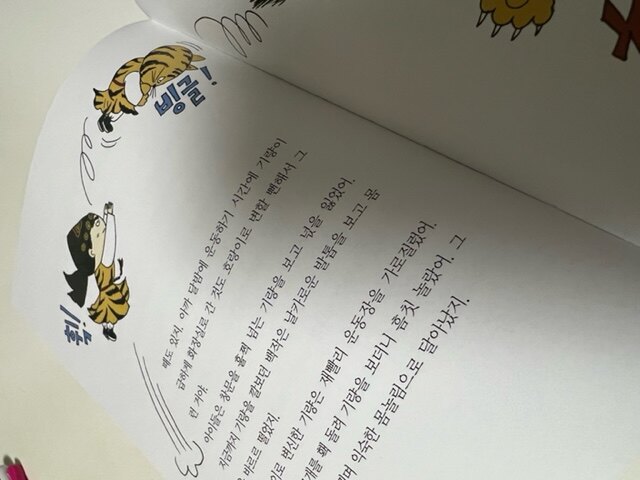 빙글!
휙!
때도 있지. 아까 달밤에 운동하기 시간에 기량이
급하게 화장실로 간 것도 호랑이로 변할 뻔해서 그
런 거야.
아이들은 창문을 훌쩍 넘는 기량을 보고 넋을 잃었어.
지금까지 기량을 깔보던 백작은 날카로운 발톱을 보고 몸
바르르 떨었지.
변신한 기량은 재빨리 운동장을 가로질렀어.
홱 돌려 기량을 보더니 흠칫 놀랐어. 그
익숙한 몸놀림으로 달아났지.